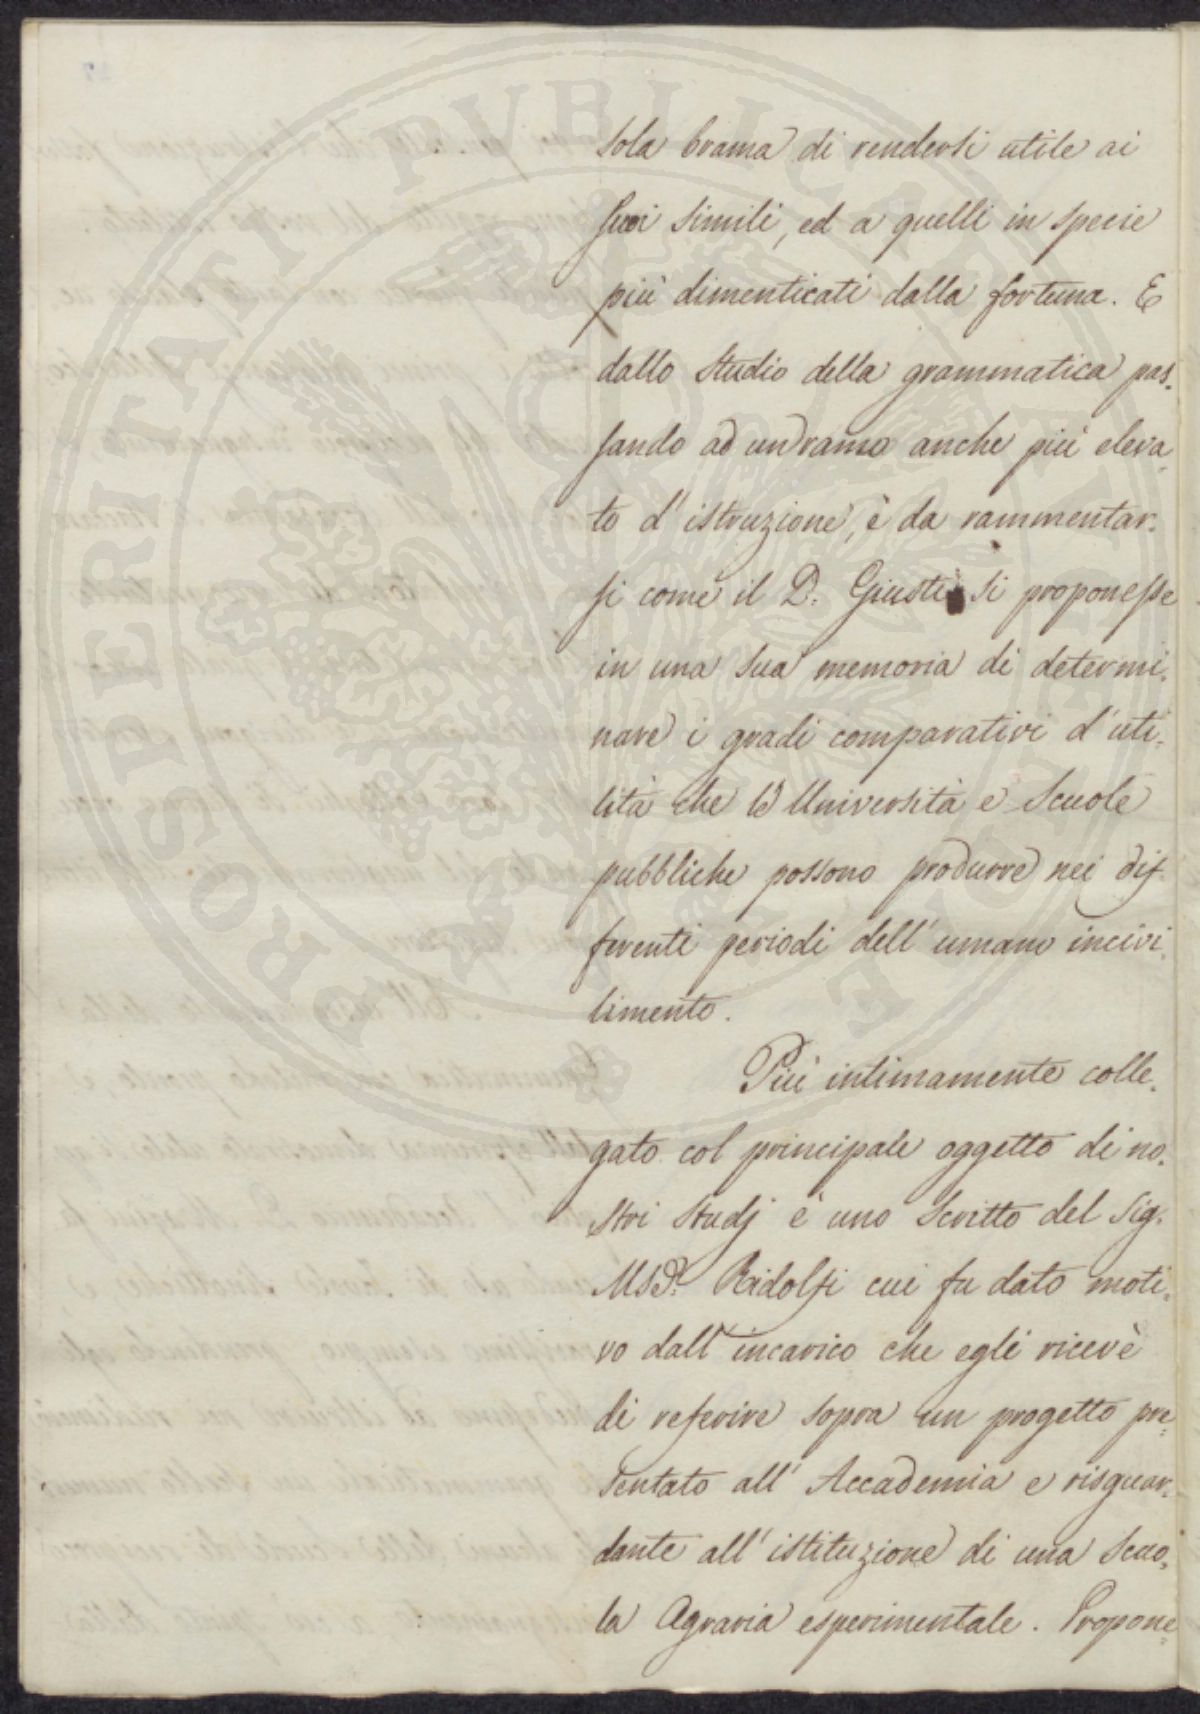 sola brama di rendersi utile ai
suoi simili, ed a quelli in specie
più dimenticati dalla fortuna. E
dallo studio della grammatica pas-
sando ad un ramo anche più eleva-
to d'istruzione, è da rammentar-
si come il D. Giusti si proponesse
in una sua memoria di determi-
nare i gradi comparativi d'uti-
lità che le Università e Scuole
pubbliche possono produrre nei dif-
ferenti periodi dell'umano incivi-
limento.
Più intimamente colle-
gato col principale oggetto di no-
stri studj è uno scritto del Sig.
Ridolfi cui fu dato moti-
vo dall'incarico che egli ricevè
di referire sopra un progetto pre-
sentato all'Accademia e risguar-
dante all'istituzione di una Scuo-
la Agraria esperimentale. Propone-
PROSPERITATI PVBLICAE AVGENDAE